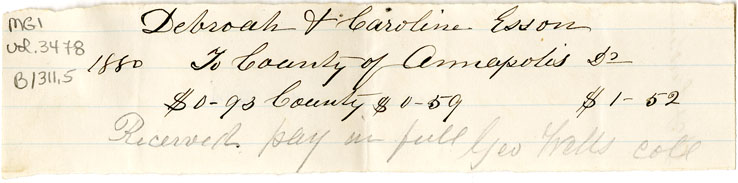 Debroah & Caroline Esson
MG1
vol. 3478
B1311,5
1880 To County of Annapolis Dr
$0-93 County $0-59 $1-52
Received pay in full Geo Wells coll